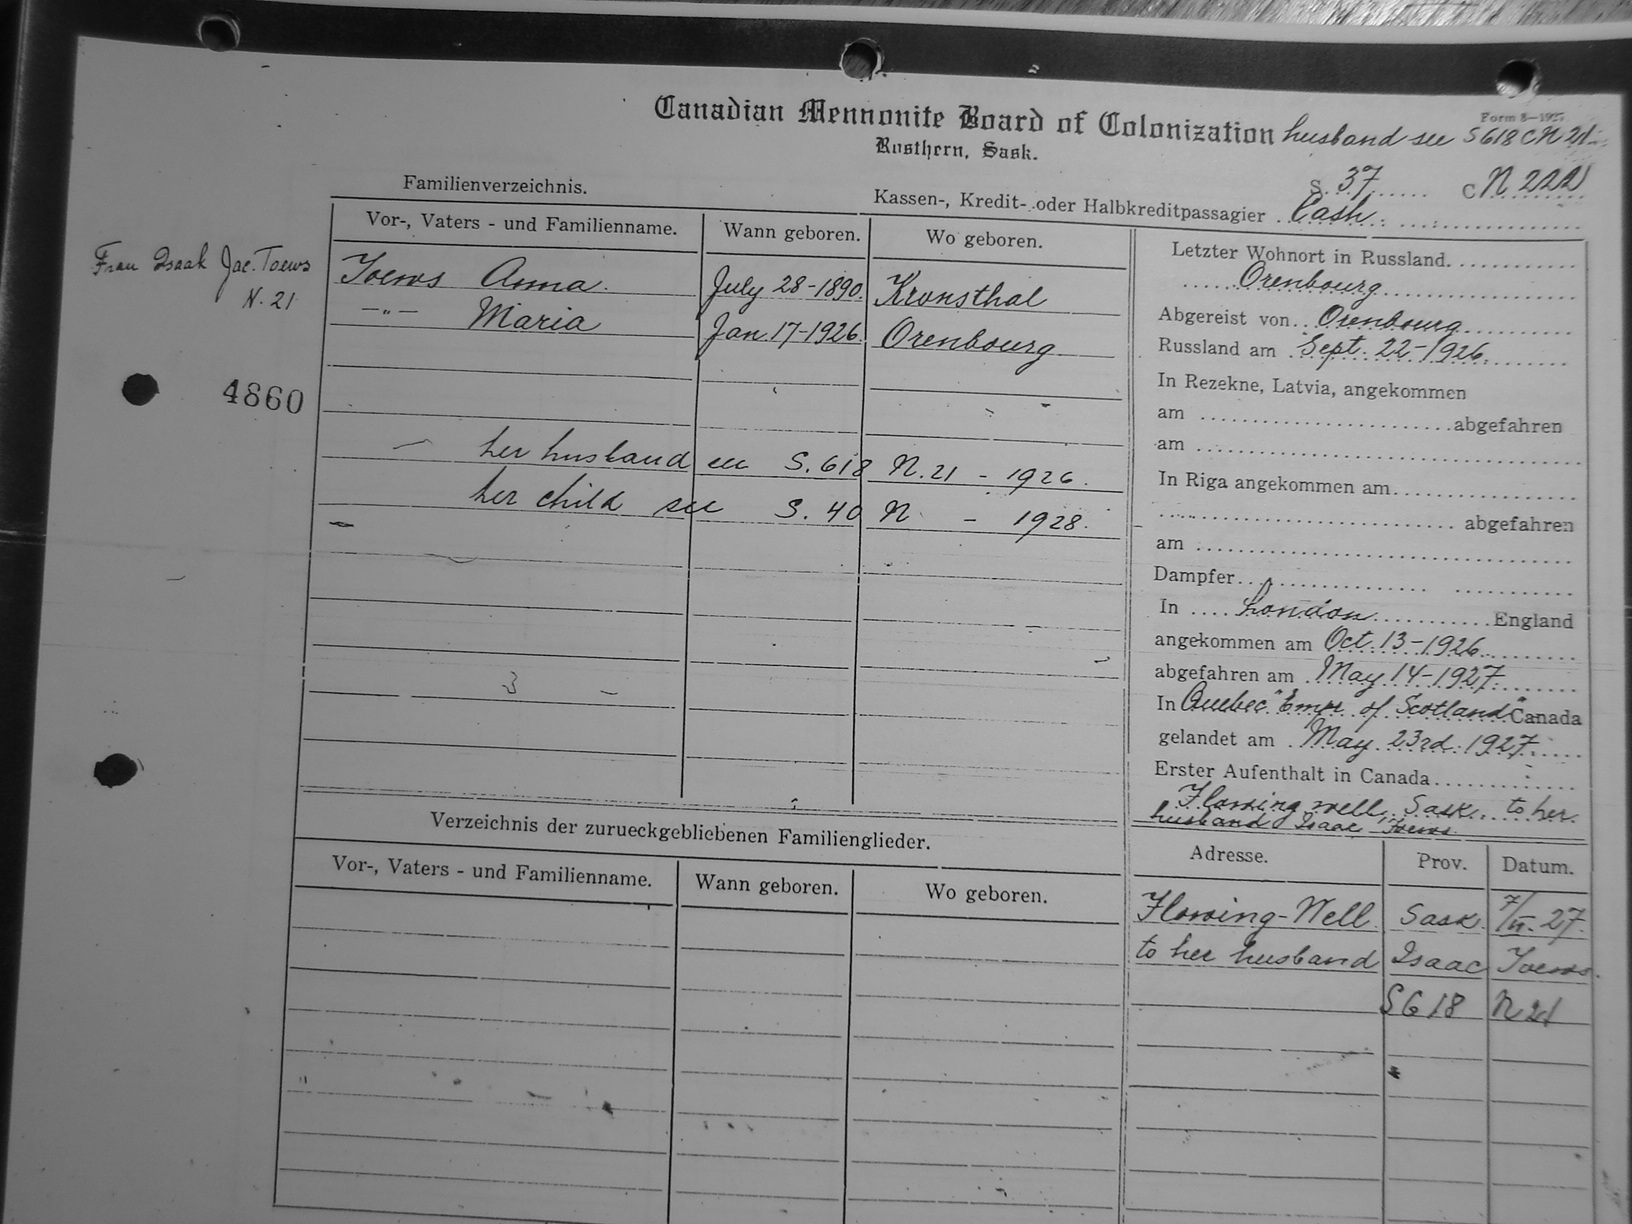 Form 8—1927
Canadian Mennonite Board of Colonization husband see S618 CN 21
Rosthern, Sask.
S. 37 C N 222
Familienverzeichnis.
Kassen-, Kredit- oder Halbkreditpassagier Cash
Vor-, Vaters - und Familienname. Wann geboren. Wo geboren.
Frau Isaak Jac. Toews
N. 21
Toews Anna. July 28-1890. Kronsthal
-"- Maria Jan. 17-1926. Orenbourg
4860
her husband see S. 618 N. 21 - 1926.
her child see S. 40 N - 1928.
Letzter Wohnort in Russland
Orenbourg
Abgereist von Orenbourg
Russland am Sept. 22-1926.
In Rezekne, Latvia, angekommen
am abgefahren
am
In Riga angekommen am
abgefahren
am
Dampfer
In London England
angekommen am Oct. 13-1926.
abgefahren am May 14-1927.
In Quebec "Empr of Scotland" Canada
gelandet am May 23rd 1927.
Erster Aufenthalt in Canada
Flowing well, Sask. to her
husband Isaac Toews
Verzeichnis der zurueckgebliebenen Familienglieder.
Vor-, Vaters - und Familienname. Wann geboren. Wo geboren.
Adresse. Prov. Datum.
Flowing-Well Sask. 7/VI. 27.
to her husband Isaac Toews.
S618 N 21